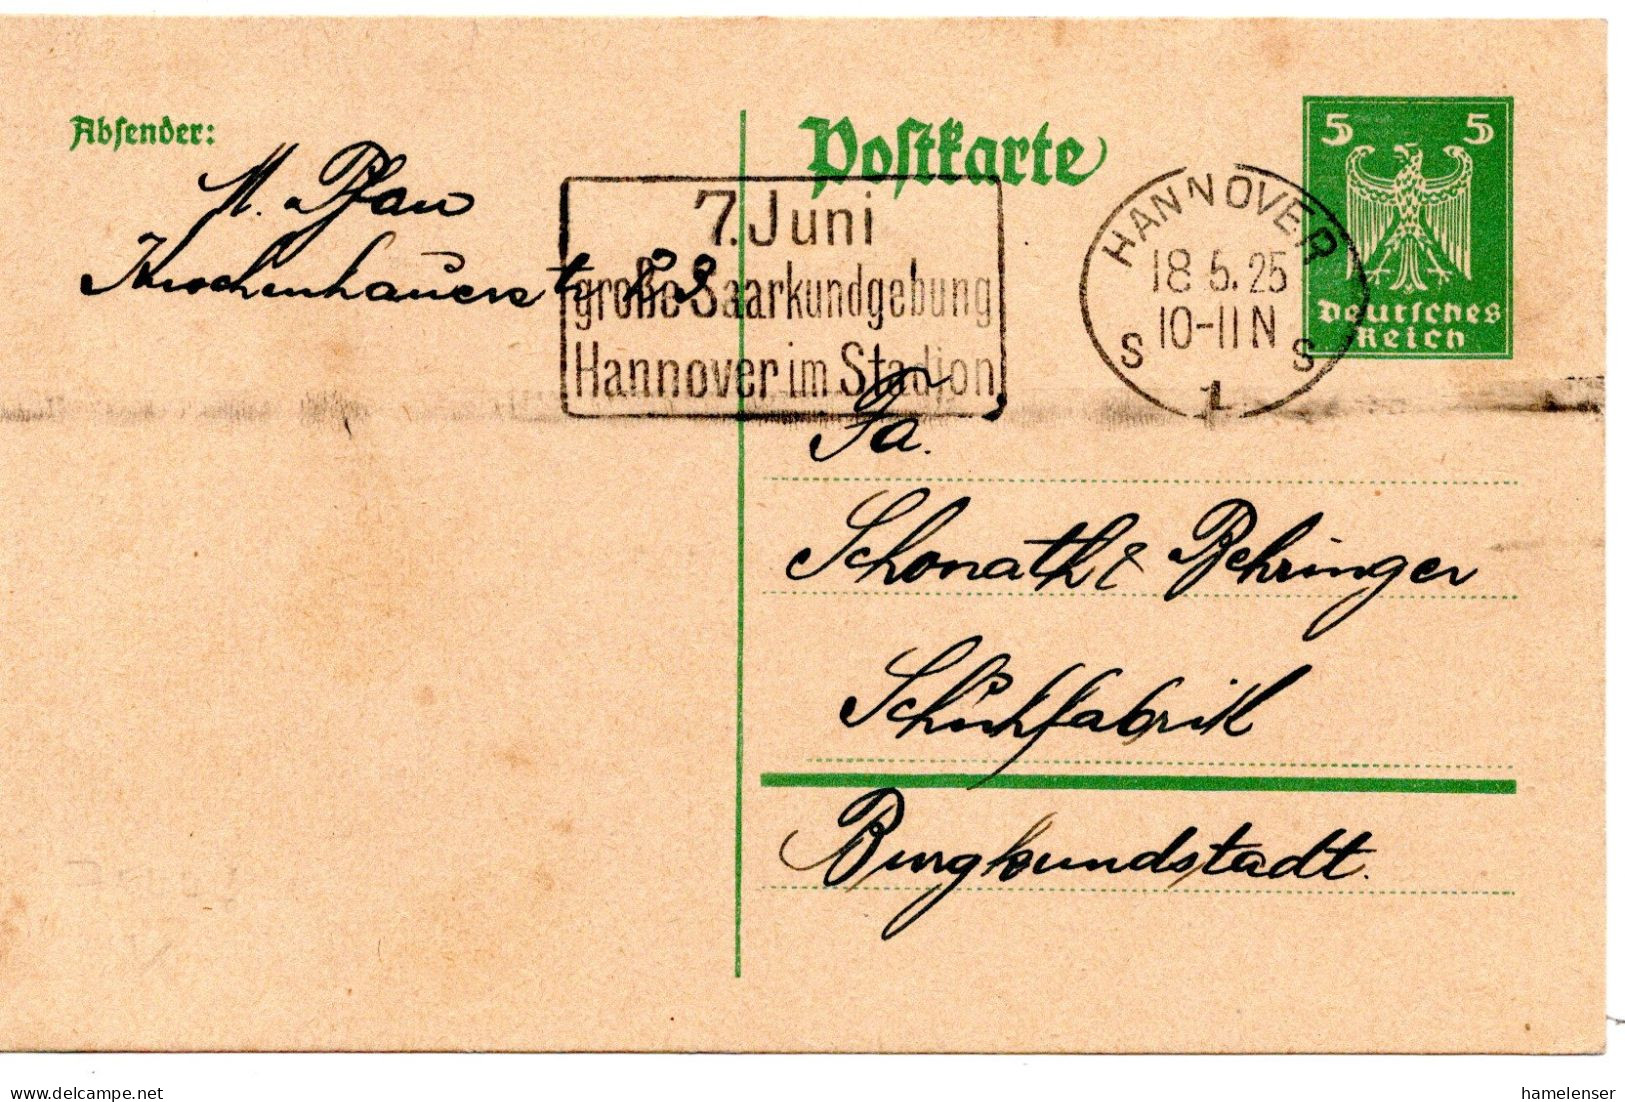 Absender:
M. Pfau
Postkarte
5 5
Deutsches
Reich
7. Juni
große Saarkundgebung
Hannover im Stadion
HANNOVER
18.5.25
10-11 N
S S
1
Fa.
Schonath & Behringer
Schuhfabrik
Burgkundstadt.
delcampe.net
hamelenser